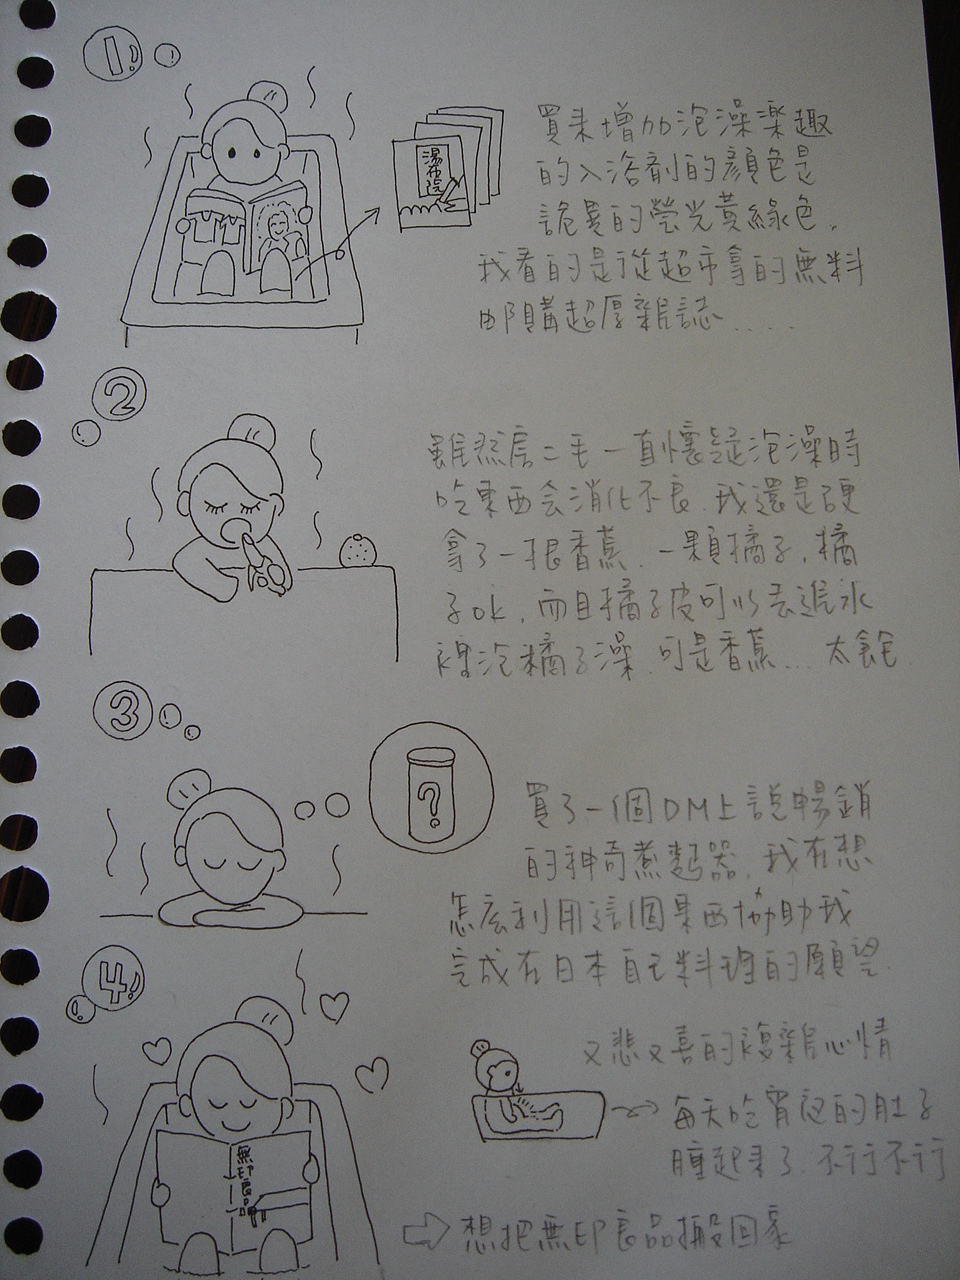 1
湯布院
買來增加泡澡樂趣
的入浴劑的顏色是
詭異的螢光黃綠色,
我看的是從超市拿的無料
郵購超厚雜誌.....
2
雖然房二毛一直懷疑泡澡時
吃東西会消化不良.我還是硬
拿了一根香蕉.一顆橘子,橘
子ok,而且橘子皮可以丟進水
裡泡橘子澡.可是香蕉...太飽.
3
?
買了一個DM上說暢銷
的神奇煮麵器,我在想
怎広利用這個東西協助我
完成在日本自己料理的願望.
4
又悲又喜的複雜心情
每天吃宵夜的肚子
腫起來了.不行不行
無印良品
想把無印良品搬回家